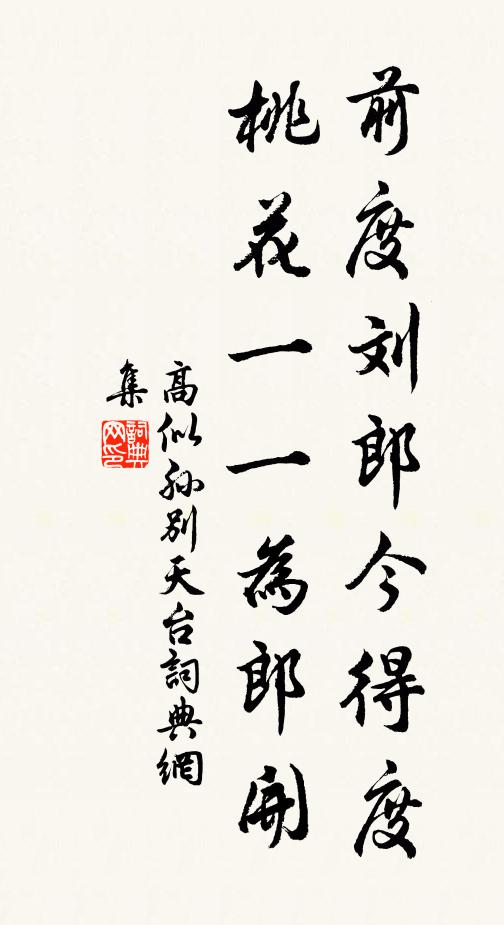 前度刘郎今得度
桃花一一為郎開
高似孙别天台詞典網
集
詞典网印